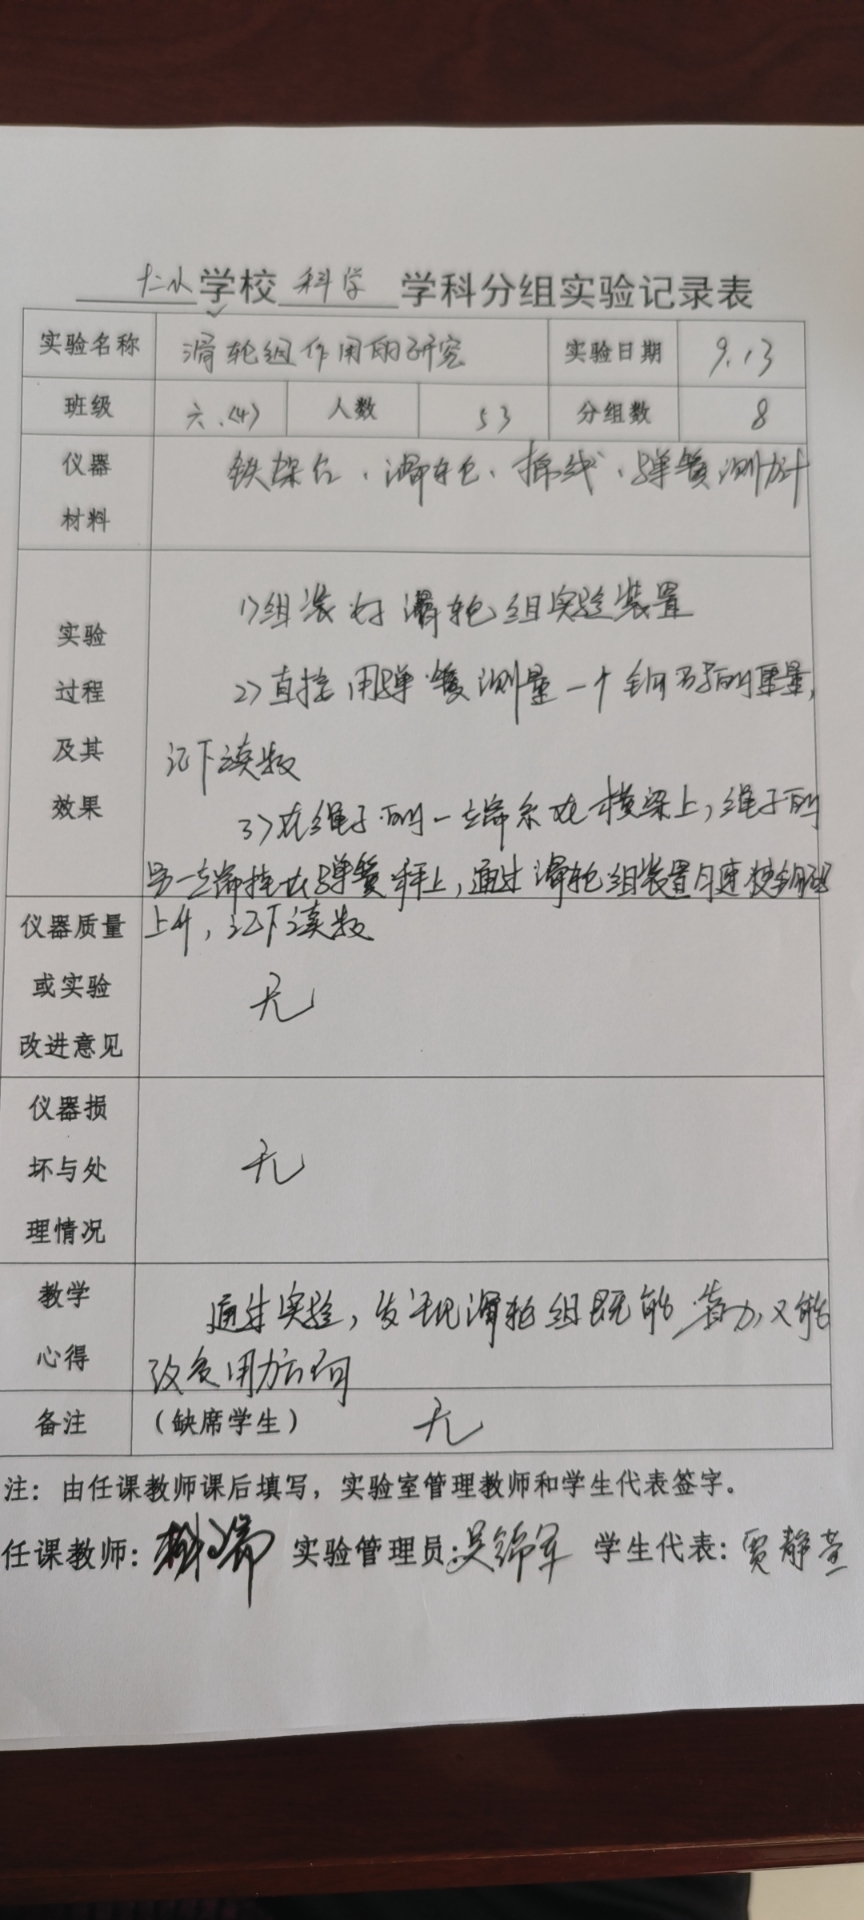 十二小学校 科学 学科分组实验记录表
实验名称 滑轮组作用的研究 实验日期 9.13
班级 六.(4) 人数 53 分组数 8
仪器 铁架台、滑轮、棉线、弹簧测力计
材料
1)组装好滑轮组实验装置
实验
2)直接用弹簧测量一个钩码的重量,
过程
及其 记下读数
效果 3)在绳子的一端系在横梁上,绳子的
另一端挂在弹簧秤上,通过滑轮组装置匀速使钩码
上升,记下读数
仪器质量
或实验 无
改进意见
仪器损
坏与处 无
理情况
教学 通过实验,发现滑轮组既能省力,又能
心得 改变用力方向
备注 (缺席学生) 无
注:由任课教师课后填写,实验室管理教师和学生代表签字。
任课教师: 实验管理员:吴锦军 学生代表:贾静萱